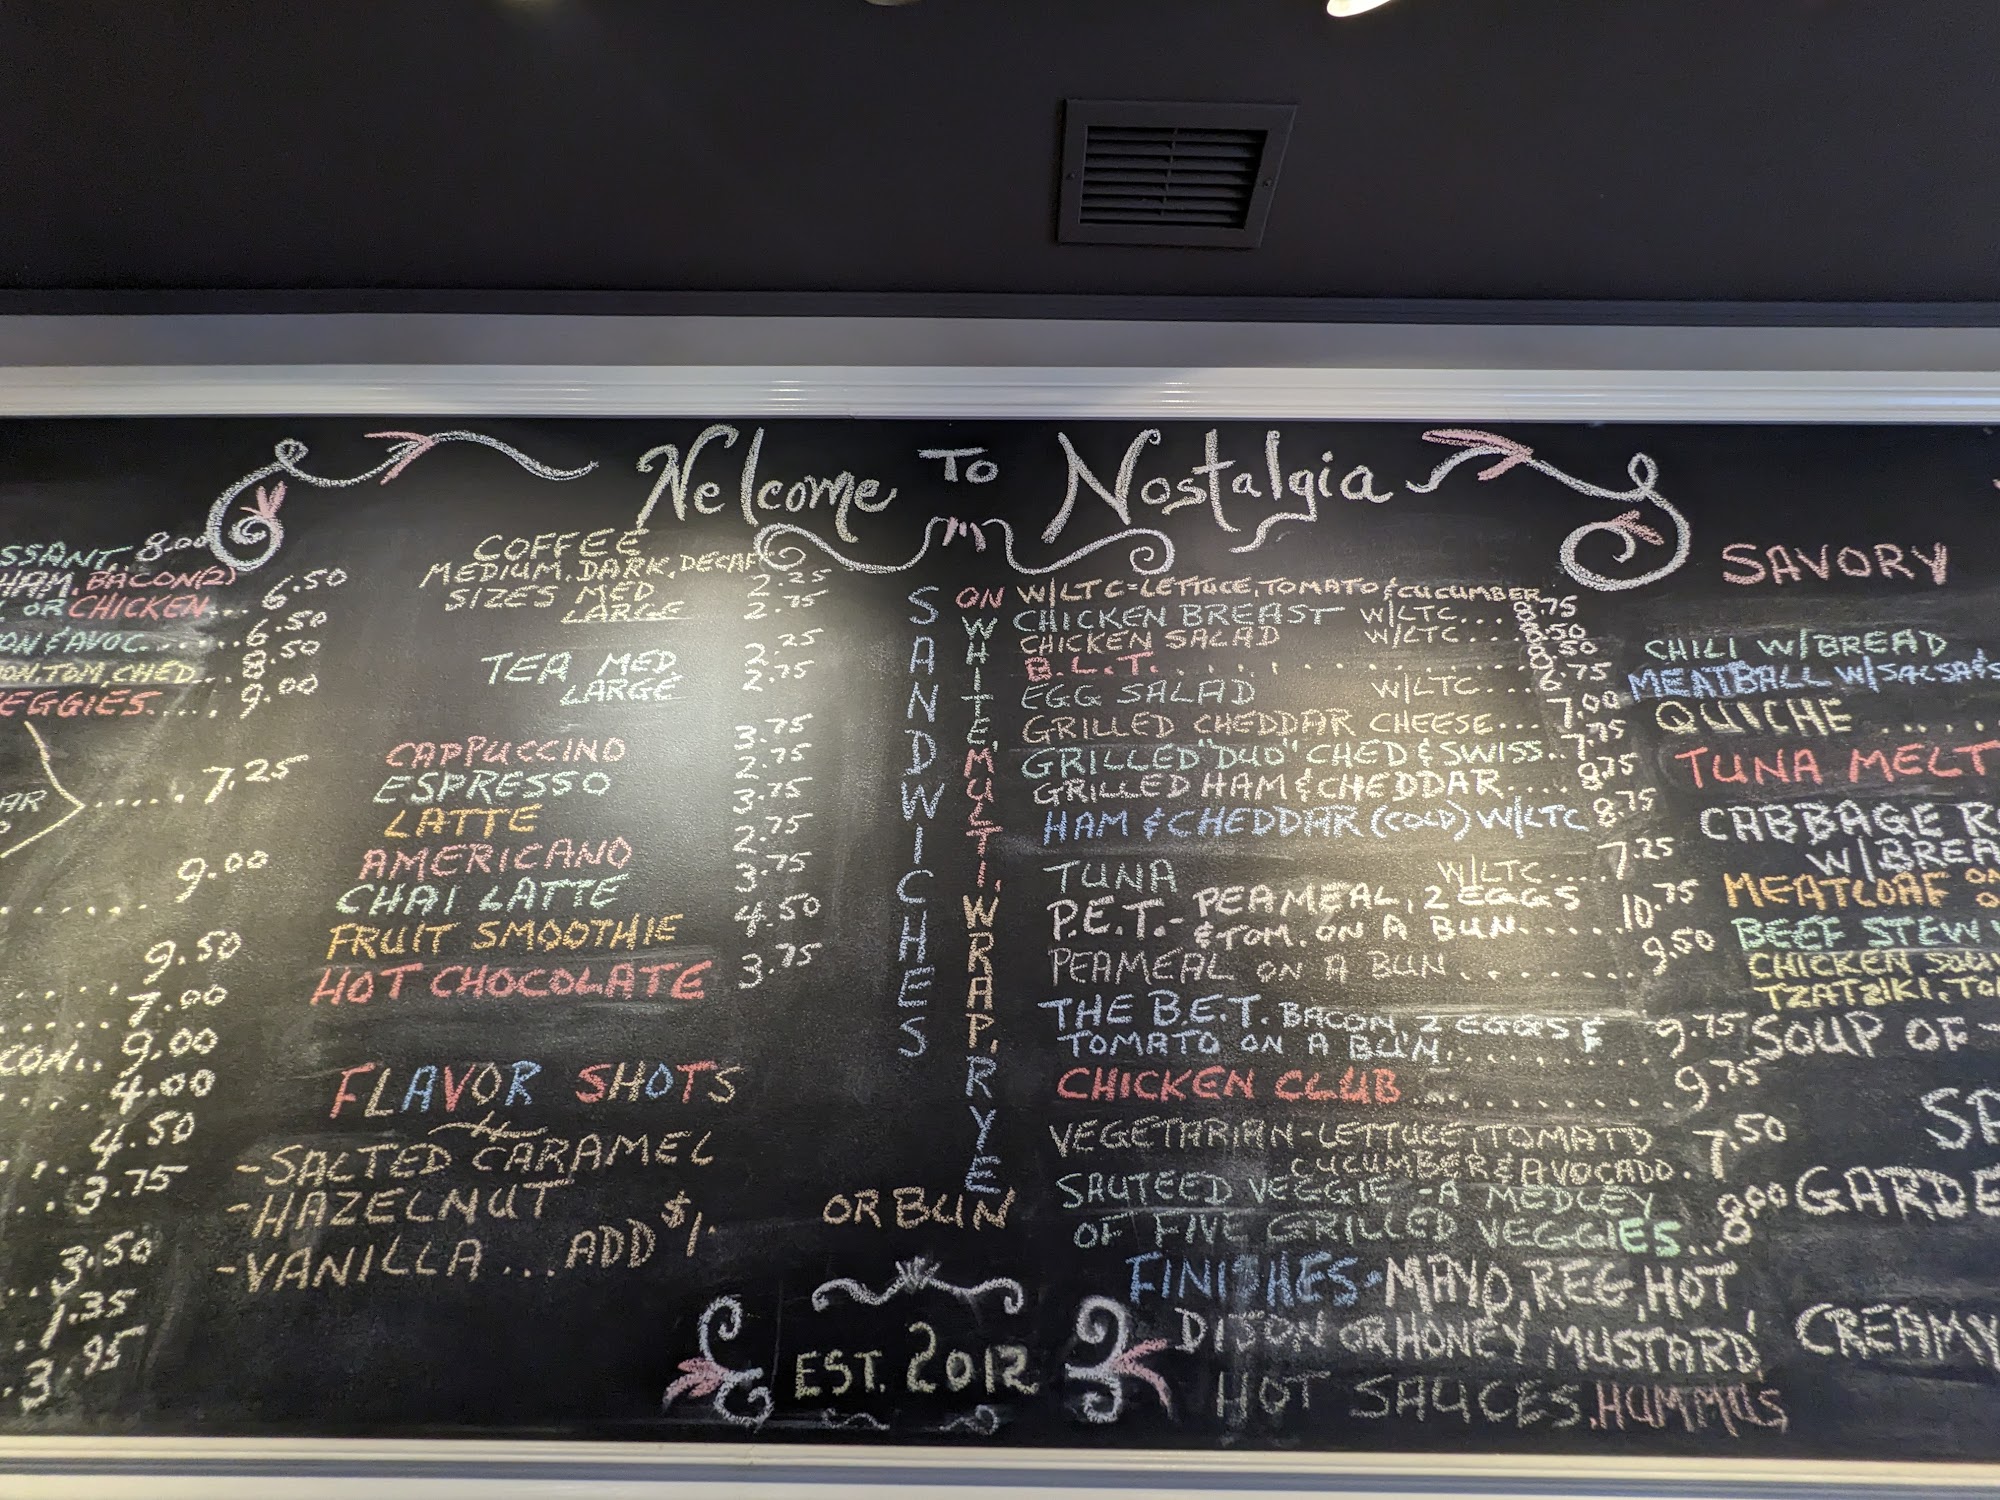 Welcome TO Nostalgia
SSANT, 8.00
HAM, BACON(2)
L OR CHICKEN... 6.50
ON & AVOC...... 6.50
ON, TOM, CHED... 8.50
EGGIES..... 9.00
AR ..... 7.25
..... 9.00
..... 9.50
..... 7.00
CON.. 9.00
.... 4.00
.... 4.50
.. 3.75
.. 3.50
. 1.35
. 3.95
COFFEE
MEDIUM, DARK, DECAF
SIZES MED 2.25
LARGE 2.75
TEA MED 2.25
LARGE 2.75
CAPPUCCINO 3.75
ESPRESSO 2.75
LATTE 3.75
AMERICANO 2.75
CHAI LATTE 3.75
FRUIT SMOOTHIE 4.50
HOT CHOCOLATE 3.75
FLAVOR SHOTS
-SALTED CARAMEL
-HAZELNUT
-VANILLA...ADD $1.
SANDWICHES
ON WHITE, MULTI, WRAP, RYE
OR BUN
EST. 2012
W/LTC=LETTUCE, TOMATO & CUCUMBER
CHICKEN BREAST W/LTC... 8.75
CHICKEN SALAD W/LTC... 8.50
B.L.T. .......... 8.50
EGG SALAD W/LTC... 6.75
GRILLED CHEDDAR CHEESE... 7.00
GRILLED "DUO" CHED & SWISS.. 7.75
GRILLED HAM & CHEDDAR.... 8.75
HAM & CHEDDAR (COLD) W/LTC 8.75
TUNA W/LTC... 7.25
P.E.T.- PEAMEAL, 2 EGGS
& TOM. ON A BUN...... 10.75
PEAMEAL ON A BUN....... 9.50
THE B.E.T. BACON, 2 EGGS &
TOMATO ON A BUN......... 9.75
CHICKEN CLUB .......... 9.75
VEGETARIAN-LETTUCE, TOMATO
CUCUMBER & AVOCADO. 7.50
SAUTEED VEGGIE -A MEDLEY
OF FIVE GRILLED VEGGIES... 8.00
FINISHES-MAYO, REG, HOT,
DIJON OR HONEY MUSTARD,
HOT SAUCES, HUMMUS
SAVORY
CHILI W/BREAD
MEATBALL W/SALSA & S
QUICHE .....
TUNA MELT
CABBAGE RO
W/BREA
MEATLOAF ON
BEEF STEW W
CHICKEN SOUV
TZATZIKI, TO
SOUP OF
SA
GARDE
CREAMY